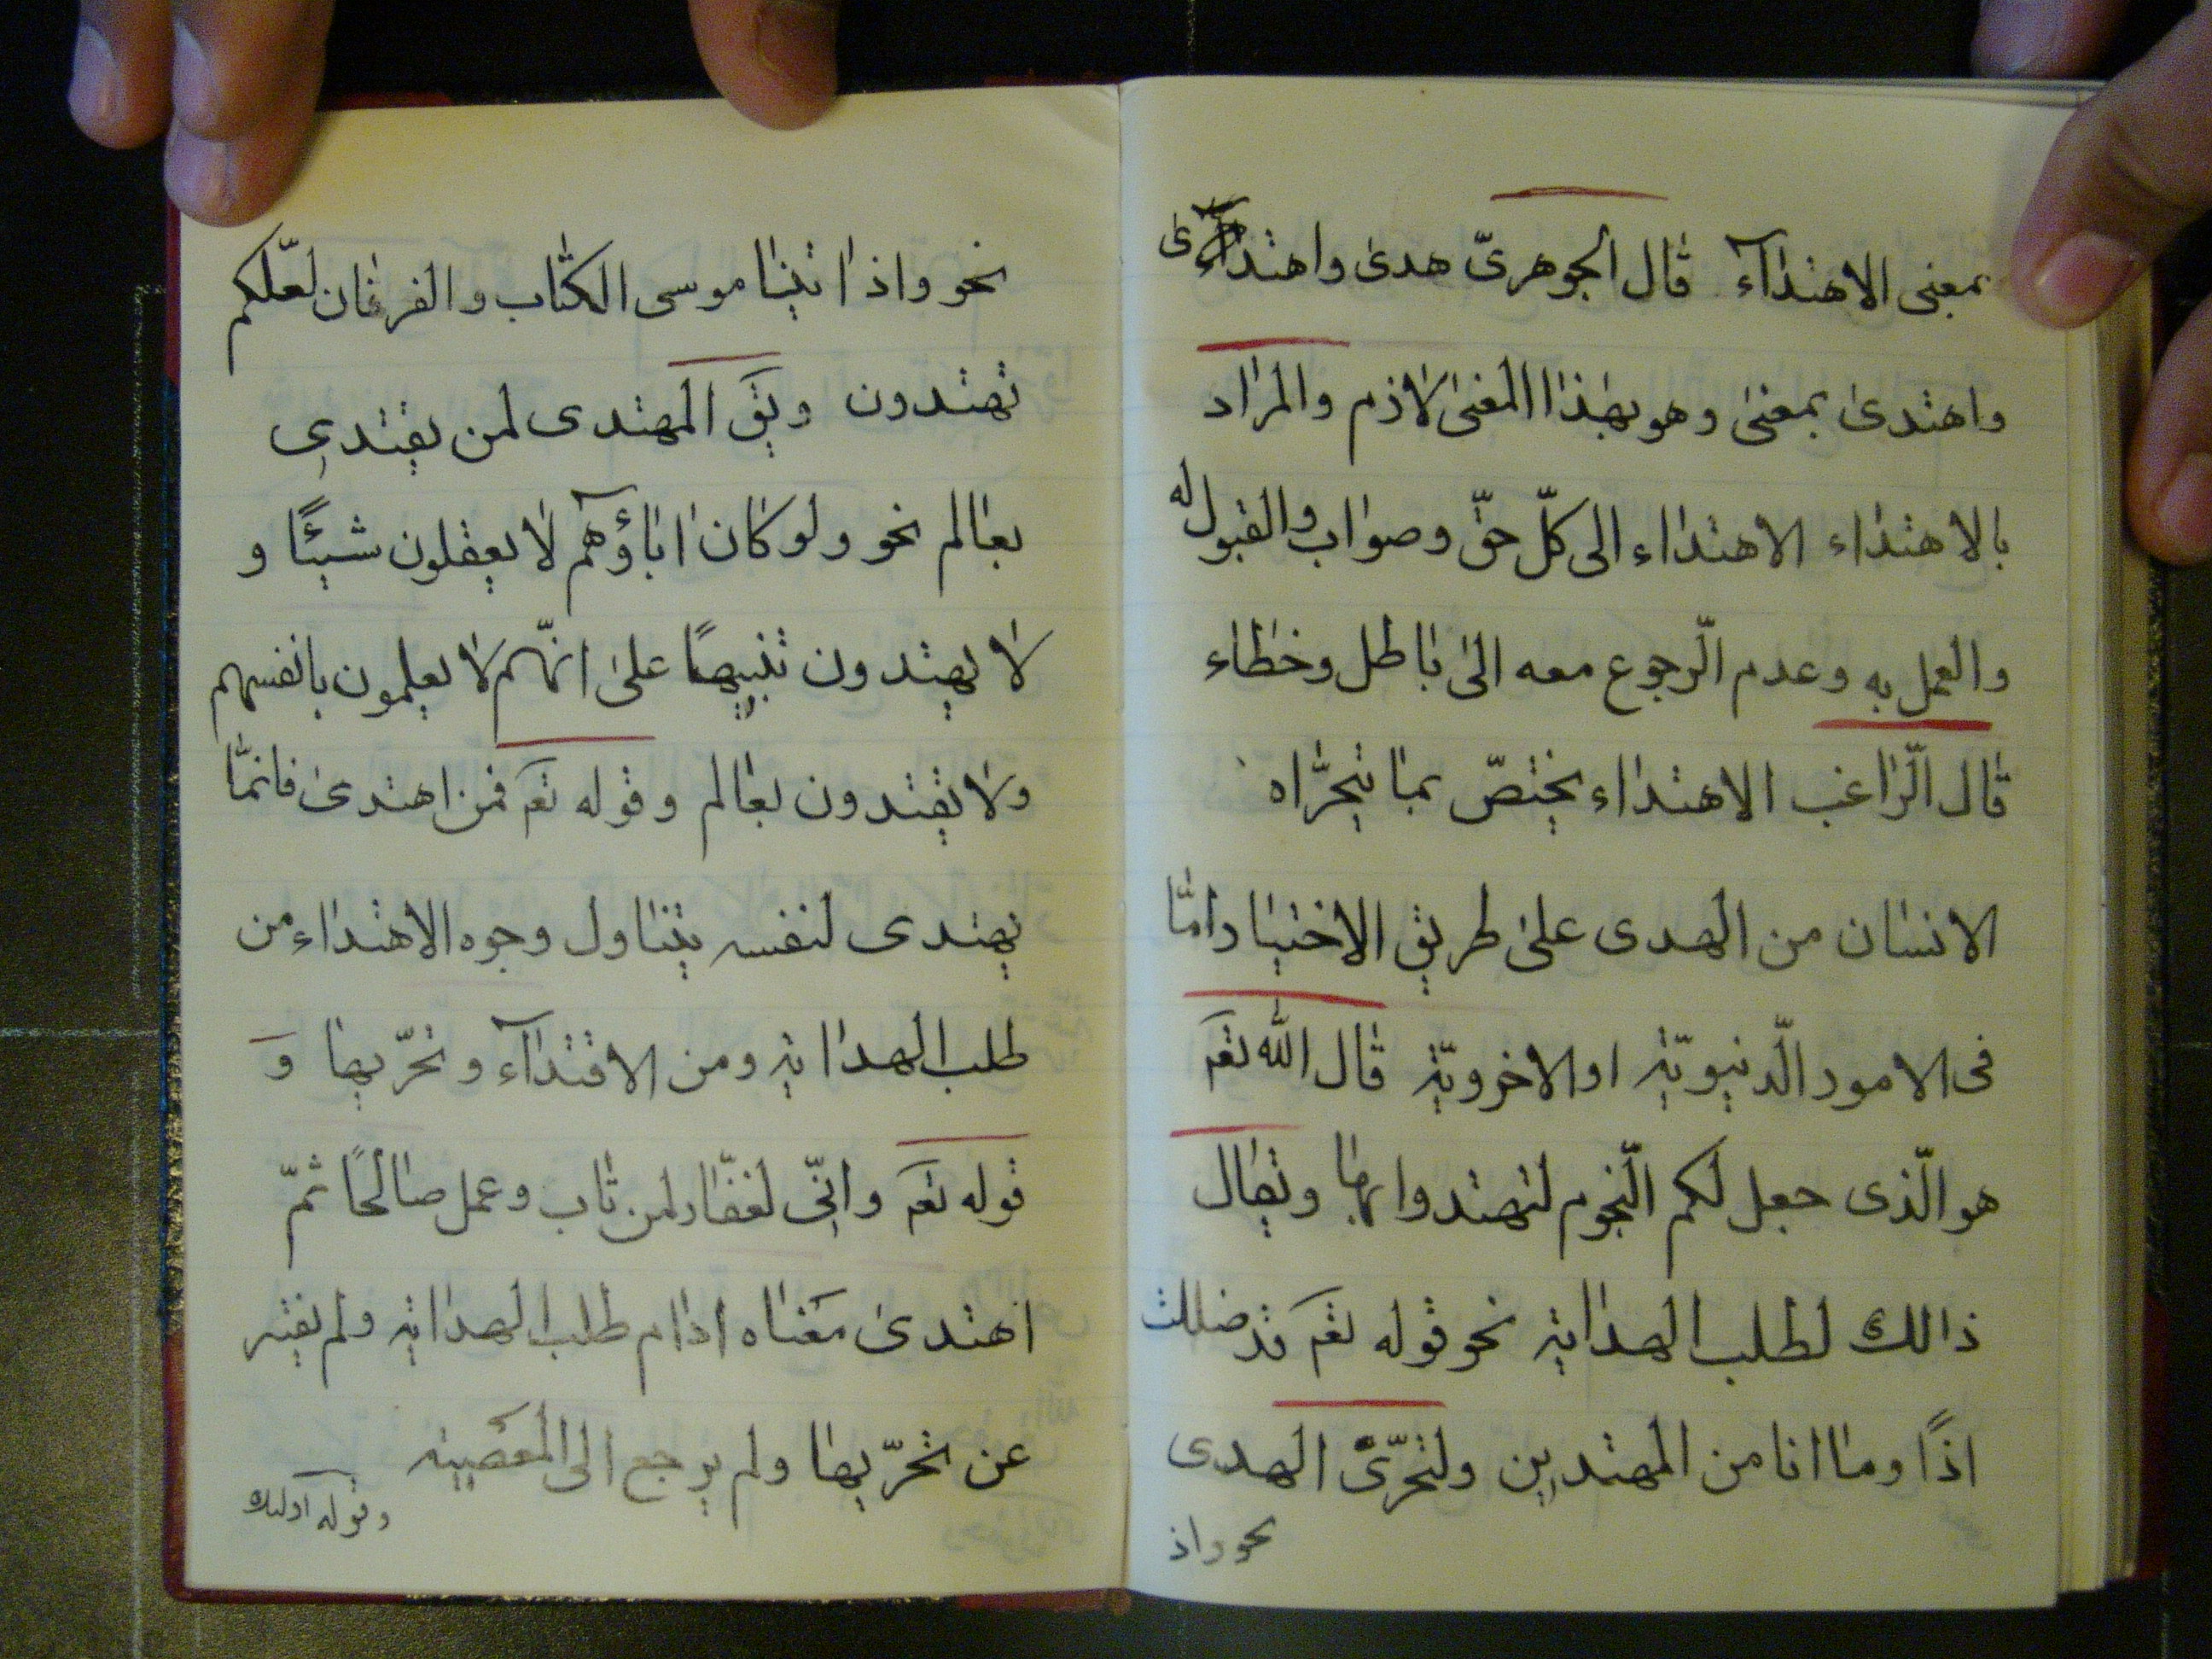 بمعنى الاهتدآء قال الجوهرىّ هدى واهتدى
واهتدى بمعنى وهو بهذا المعنى لازم والمراد
بالاهتداء الاهتداء الى كلّ حقّ وصواب والقبول له
والعمل به وعدم الرّجوع معه الى باطل وخطاء
قال الرّاغب الاهتداء يختصّ بما يتحرّاه
الانسان من الهدى على طريق الاختيار امّا
فى الامور الدّنيويّة او الاخرويّة قال الله تعم
هو الّذى جعل لكم النّجوم لتهتدوا بها ويقال
ذالك لطلب الهداية نحو قوله تعم قد ضللت
اذًا وما انا من المهتدين ولتحرّى الهدى
نحو واذ
نحو واذ اتينا موسى الكتاب والفرقان لعلّكم
تهتدون ويقَ المهتدى لمن يقتدى
بعالم نحو ولو كان اباؤهم لا يعقلون شيئًا و
لا يهتدون تنبيهًا على انّهم لا يعلمون بانفسهم
ولا يقتدون بعالم وقوله تعم فمن اهتدى فانمّا
يهتدى لنفسه يتناول وجوه الاهتداء من
طلب الهداية ومن الاقتدآء وتحرّيها وَ
قوله تعم وانّى لغفّار لمن تاب وعمل صالحًا ثمّ
اهتدى مَعناه ادام طلب الهداية ولم يفتر
عن تحرّيها ولم يرجع الى المعصية
وقوله اولئك